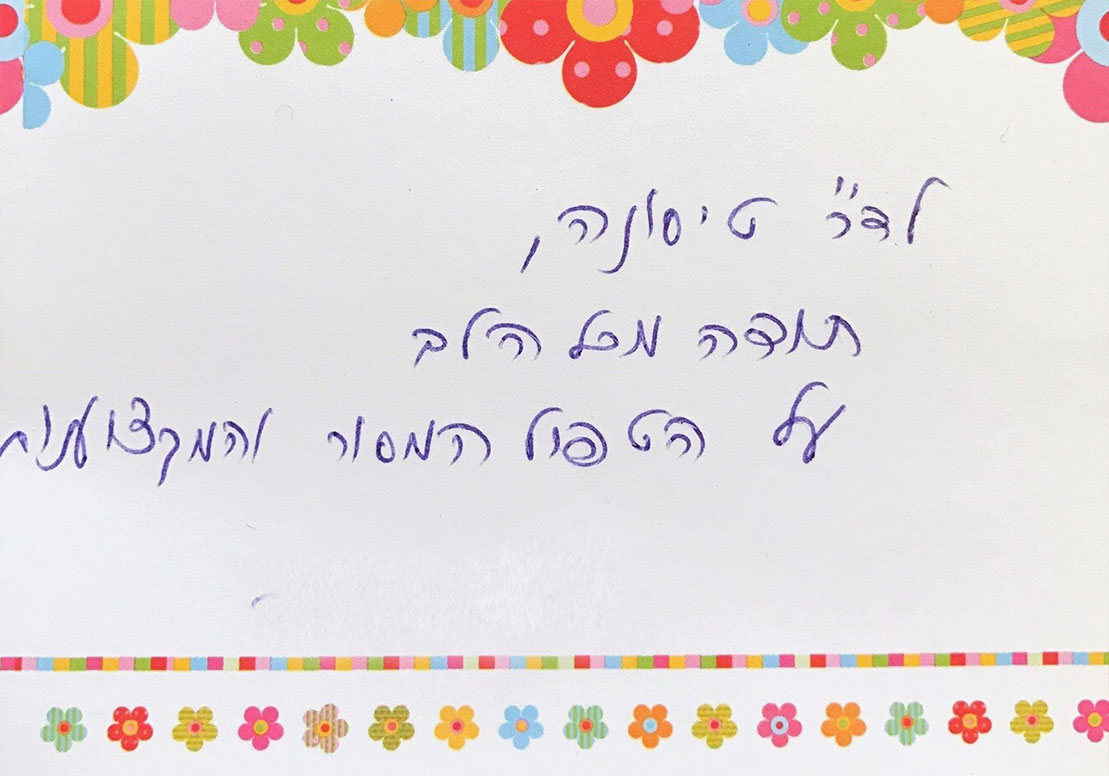 לד״ר טיסונה,
תודה מכל הלב
על הטפול המסור והמקצועי